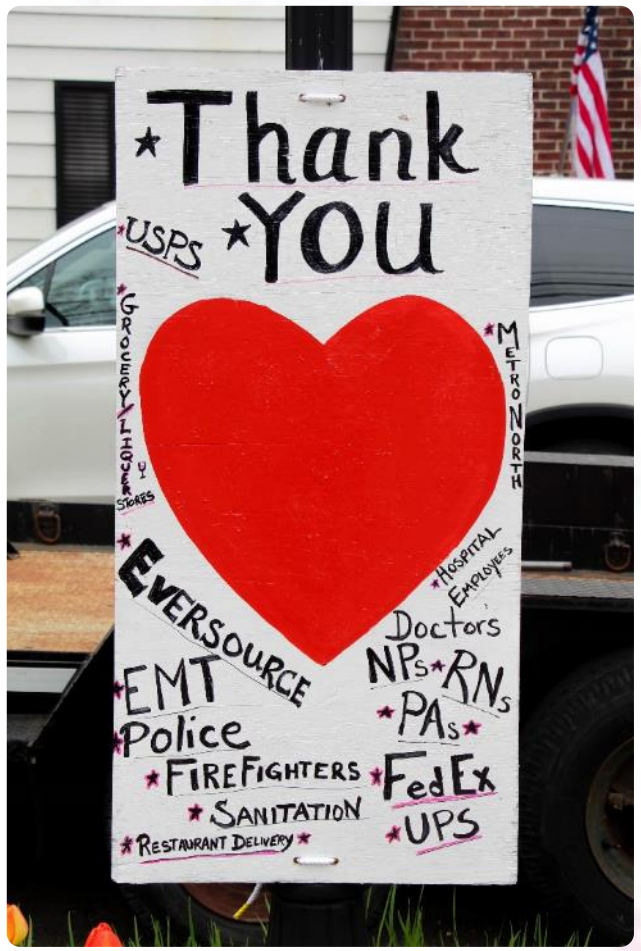 Thank
YOU
USPS
GROCERY/LIQUER
STORES
METRO NORTH
EVERSOURCE
HOSPITAL
EMPLOYEES
Doctors
NPs RNs
EMT
PAs
Police
FIREFIGHTERS
FedEx
SANITATION
UPS
RESTAURANT DELIVERY